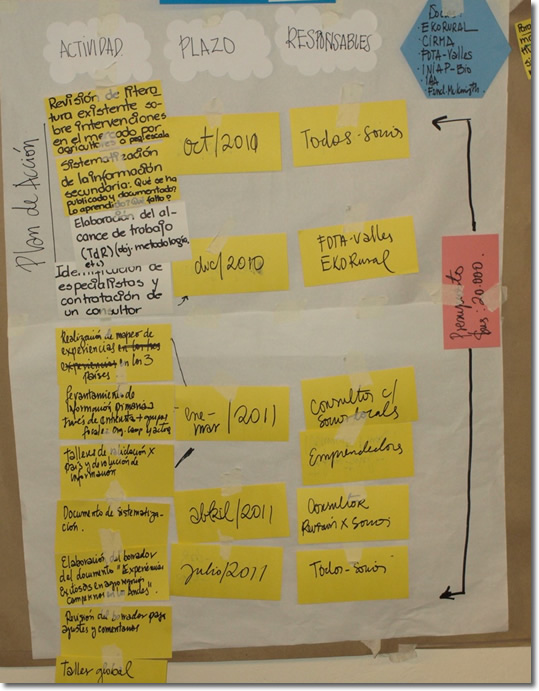 Plan de Acción
ACTIVIDAD
PLAZO
RESPONSABLES
Socios
- EKORURAL
- CIRMA
- FDTA-Valles
- INIAP-Bio
- IAA
Revisión de litera
tura existente so-
bre intervenciones
en el mercado por
agricultores a peq. escala
Sistematización
de la información
secundaria: Qué se ha
publicado y documentado?
Lo aprendido? Qué falta?
oct/2010
Todos-Socios
Elaboración del al
cance de trabajo
(TdR) (obj. metodología,
etc)
Identificación de
especialistas y
contratación de
un consultor
dic/2010
FDTA-Valles
EKORural
Presupuesto
$us: 20.000.
Realización de mapeo de
experiencias en los tres
experiencias en los 3
países
Levantamiento de
información primaria a
través de encuesta + grupos
focales Org. camp y actores
Talleres de validación x
país y devolución de
información
ene-
mar/2011
Consultor c/
socios locales
Emprendedores
Documento de sistematiza-
ción.
abril/2011
Consultor
Revisión x Socios
Elaboración del borrador
del documento "Experiencias
Exitosas en agronegocios
campesinos en los Andes".
julio/2011
Todos-Socios
Revisión del borrador para
ajustes y comentarios
Taller global